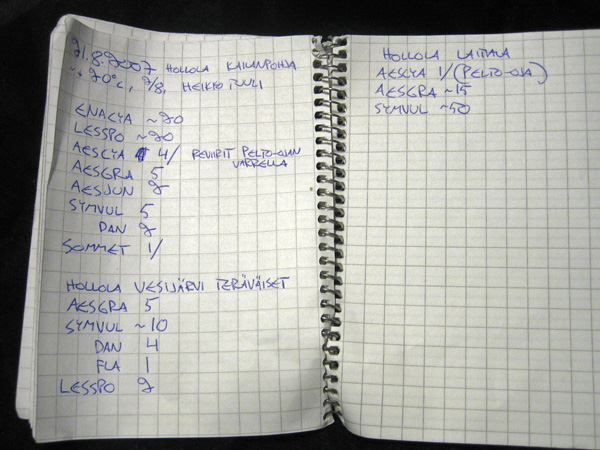 21.8.2007 HOLLOLA
~+20°C, 2/8, HEIKKO TUULI
ENACYA ~20
LESSPO ~20
AESCYA 4/ REVIIRIT PELTO-OJAN
VARRELLA
AESGRA 5
AESJUN 2
SYMVUL 5
DAN 2
SOMMET 1/
HOLLOLA VESIJÄRVI TERÄVÄISET
AESGRA 5
SYMVUL ~10
DAN 4
FLA 1
LESSPO 2
HOLLOLA LAITALA
AESCYA 1/ (PELTO-OJA)
AESGRA ~15
SYMVUL ~50